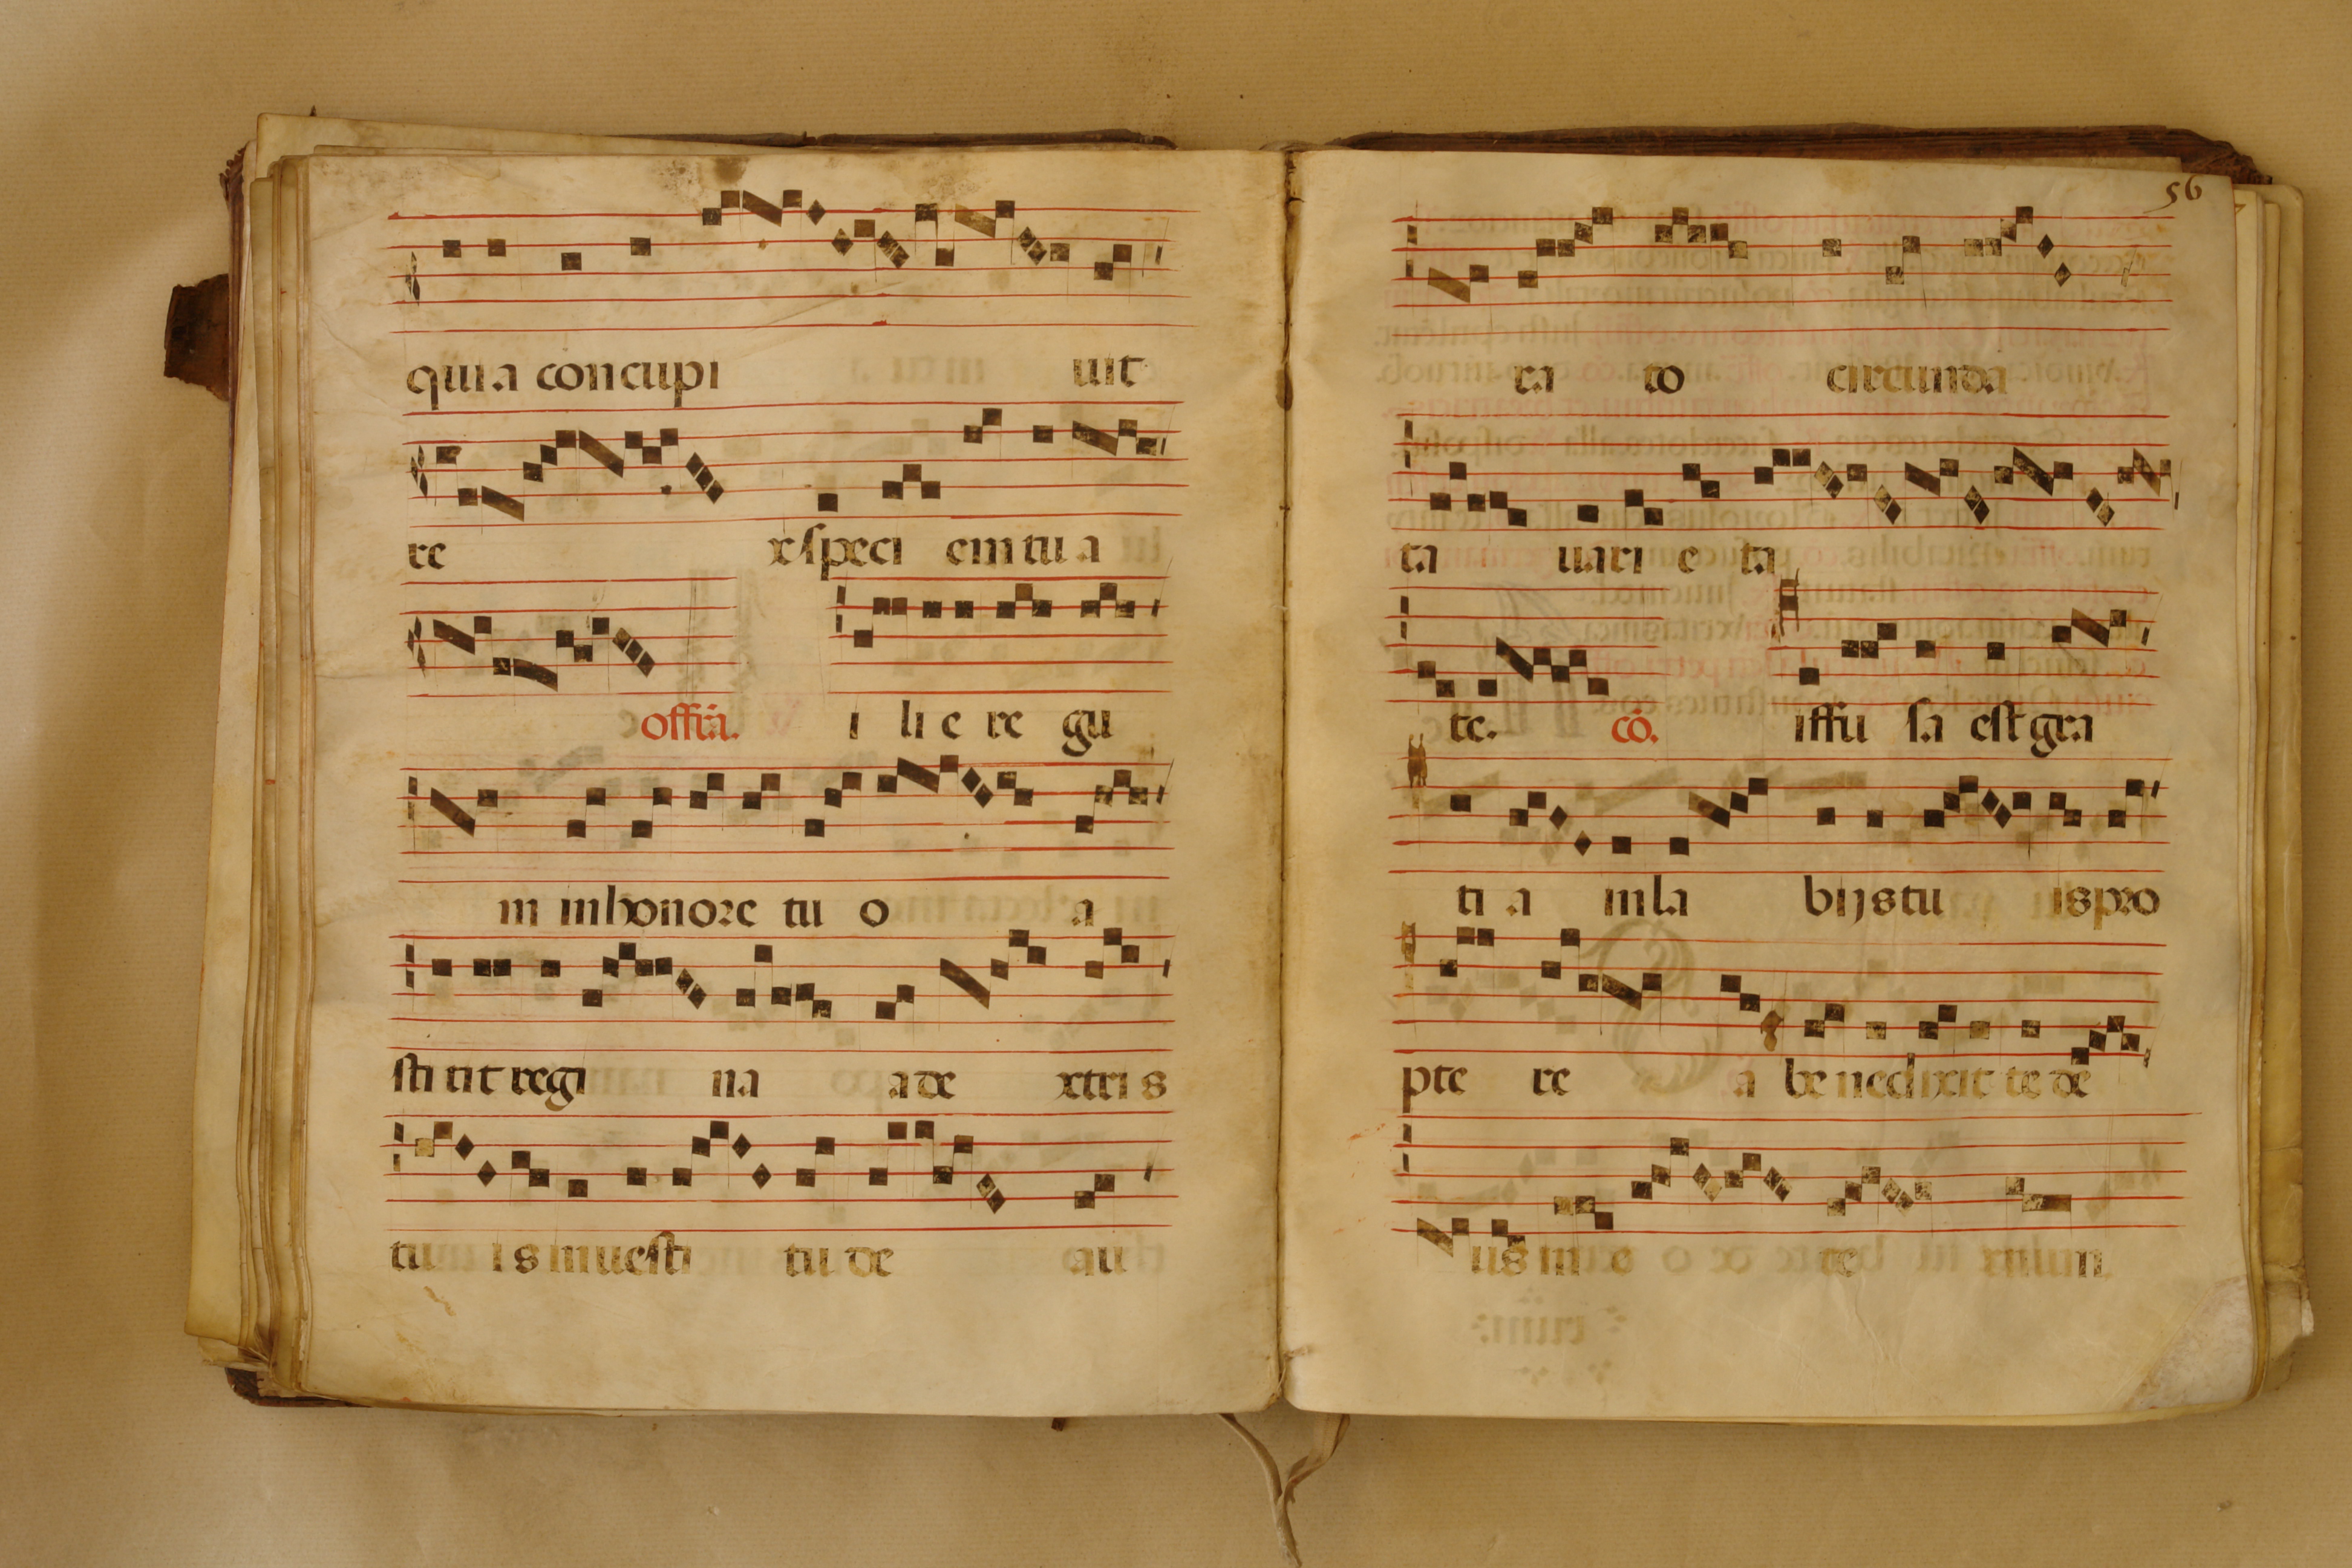 quia concupi uit
re x speci em tu a
offr̄a. i li e re gu
m in honore tu o a
sti tit regi na a de xtri s
tu i s in uesti tu de au
56
ra to circunda
ta uari e ta
te. cō. iffu sa est gra
ti a in la bijs tu is pro
pte re a be nedixit te de
us in e te